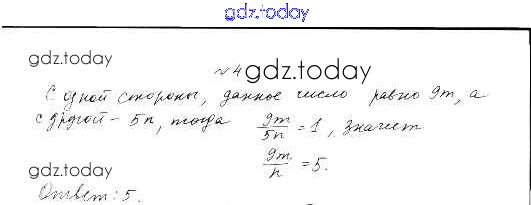 gdz.today
gdz.today
№4 gdz.today
С одной стороны, данное число равно 9m, а
с другой - 5n, тогда 9m/5n = 1, значит
9m/n = 5.
gdz.today
Ответ: 5.